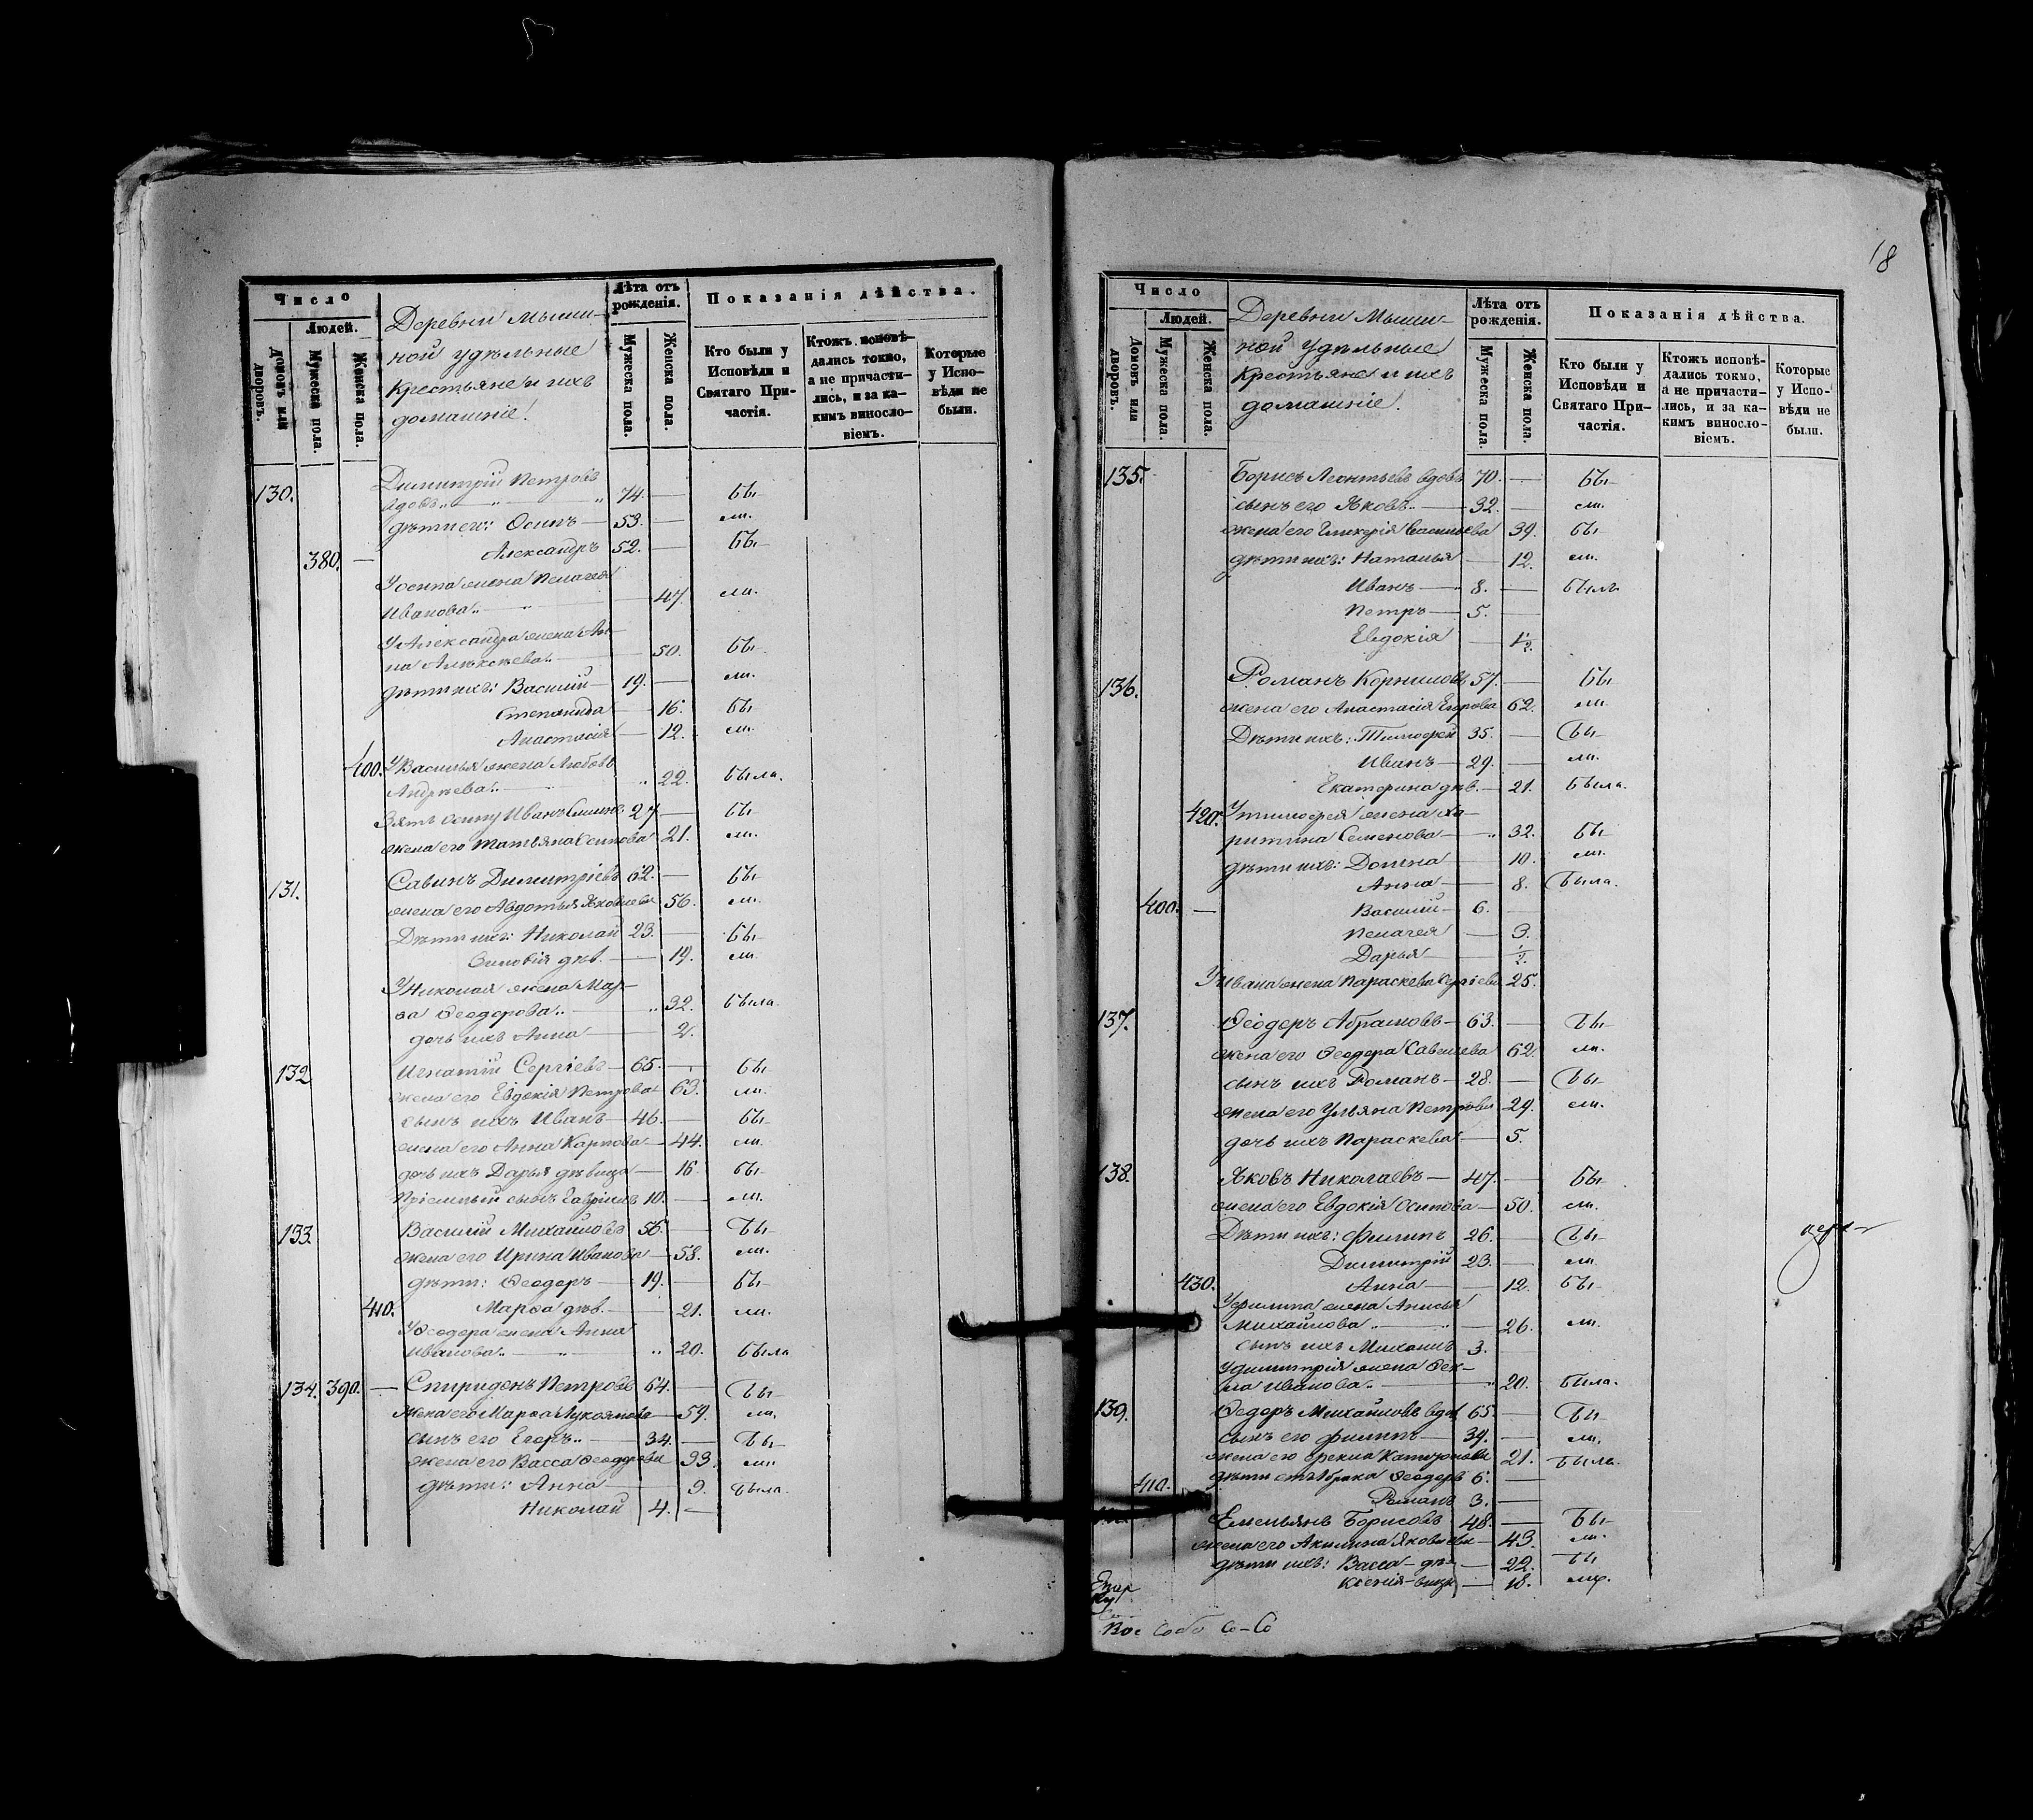 18
Число
Людей.
Домовъ или дворовъ.
Мужеска пола.
Женска пола.
Деревни Мыши-
ной удѣльные
крестьяне и ихъ
домашніе.
Лѣта отъ рожденія.
Мужеска пола.
Женска пола.
Показанія дѣйства.
Кто были у Исповѣди и Святаго При-частія.
Ктожъ исповѣ-дались токмо, а не причасти-лись, и за ка-кимъ винословіемъ.
Которые у Испо-вѣди не были.
130. Димитрій Петровъ
вдовъ „ — „ 74. — бы-
дѣти его: Осипъ — 53. — ли.
380. — Александръ 52. — бы-
У Осипа жена Пелагея
Иванова „ — 47. ли.
У Александра жена Ан-
на Алексѣева „ — 50. бы-
дѣти ихъ: Василій — 19. — ли.
Степанида — 16. бы-
Анастасія — 12. ли.
400. У Василья жена Любовь
Андрѣева „ — „ 22. была.
Зять Осипу Иванъ 27 — бы-
жена его Татьяна Осипова 21. ли.
131. Савинъ Димитріевъ 62. — бы-
жена его Авдотья Яковлева 56. ли.
Дѣти ихъ: Николай 23. — бы-
Зиновія дѣв. — 19. ли.
У Николая жена Мар-
ѳа Ѳеодорова „ — „ 32. была.
дочь ихъ Анна — 2.
132 Игнатій Сергіевъ — 65. — бы-
жена его Евдокія Петрова 63. ли.
сынъ ихъ Иванъ — 46. — бы-
жена его Анна Карпова — 44. ли.
дочь ихъ Дарья дѣвица — 16. бы-
Пріемный сынъ Гавріилъ 10. — ли.
133. Василій Михайловъ 56. — бы-
жена его Ирина Иванова — 58. ли.
дѣти: Ѳеодоръ — 19. — бы-
410. Марѳа дѣв. — 21. ли.
У Ѳеодора жена Анна
Иванова „ — „ „ 20. была
134. 390. — Спиридонъ Петровъ 64. — бы-
жена его Марѳа Лукоянова — 59. ли.
сынъ его Егоръ „ — 34. — бы-
жена его Васса Ѳеодорова 33. ли.
дѣти: Анна — 9. была.
Николай 4. —
Число
Людей.
Домовъ или дворовъ.
Мужеска пола.
Женска пола.
Деревни Мыши-
ной удѣльные
крестьяне и ихъ
домашніе.
Лѣта отъ рожденія.
Мужеска пола.
Женска пола.
Показанія дѣйства.
Кто были у Исповѣди и Святаго При-частія.
Ктожъ исповѣ-дались токмо, а не причасти-лись, и за ка-кимъ винословіемъ.
Которые у Испо-вѣди не были.
135. Борисъ Леонтьевъ вдовъ 70. — бы-
сынъ его Яковъ „ — 32. — ли.
жена его Гликерія Васильева 39. бы-
дѣти ихъ: Наталья — 12. ли.
Иванъ — 8. — былъ
Петръ — 5.
Евдокія — 1/2.
136. Романъ Корниловъ 57. — бы-
жена его Анастасія Егорова 62. ли.
Дѣти ихъ: Тимофей 35. — бы-
Иванъ — 29. — ли.
Екатерина дѣв. — 21. была.
420. У Тимофея жена Ха-
ритина Семенова — „ 32. бы-
дѣти ихъ: Домна — 10. ли.
Анна — 8. была.
400. — Василій — 6. —
Пелагея — 3.
Дарья — 1/2.
У Ивана жена Параскева Сергіева 25.
137. Ѳеодоръ Абрамовъ — 63. — бы-
жена его Ѳеодора Савельева 62. ли.
сынъ ихъ Романъ — 28. — бы-
жена его Ульяна Петрова 29. ли.
дочь ихъ Параскева — 5.
138. Яковъ Николаевъ — 47. — бы-
жена его Евдокія Осипова — 50. ли.
Дѣти ихъ: Филипъ 26. — бы-
Димитрій 23. — ли
430. Анна — 12. бы-
У Филипа жена Анисья
Михайлова „ — „ — 26. ли.
сынъ ихъ Михаилъ 3.
У Димитрія жена Ѳек-
ла Иванова „ — „ 20. была.
139. Ѳедоръ Михайловъ вдов 65. — бы-
сынъ его Филипъ — 39. — ли.
жена его 21. была.
410. дѣти Ѳеодоръ 6. —
Романъ 3. —
Емельянъ Борисовъ 48. — бы-
жена его Акилина Яковлева — 43. ли.
дѣти ихъ: Васса — дѣ- — 22. бы
Ксенія — вицы — 18. ли.